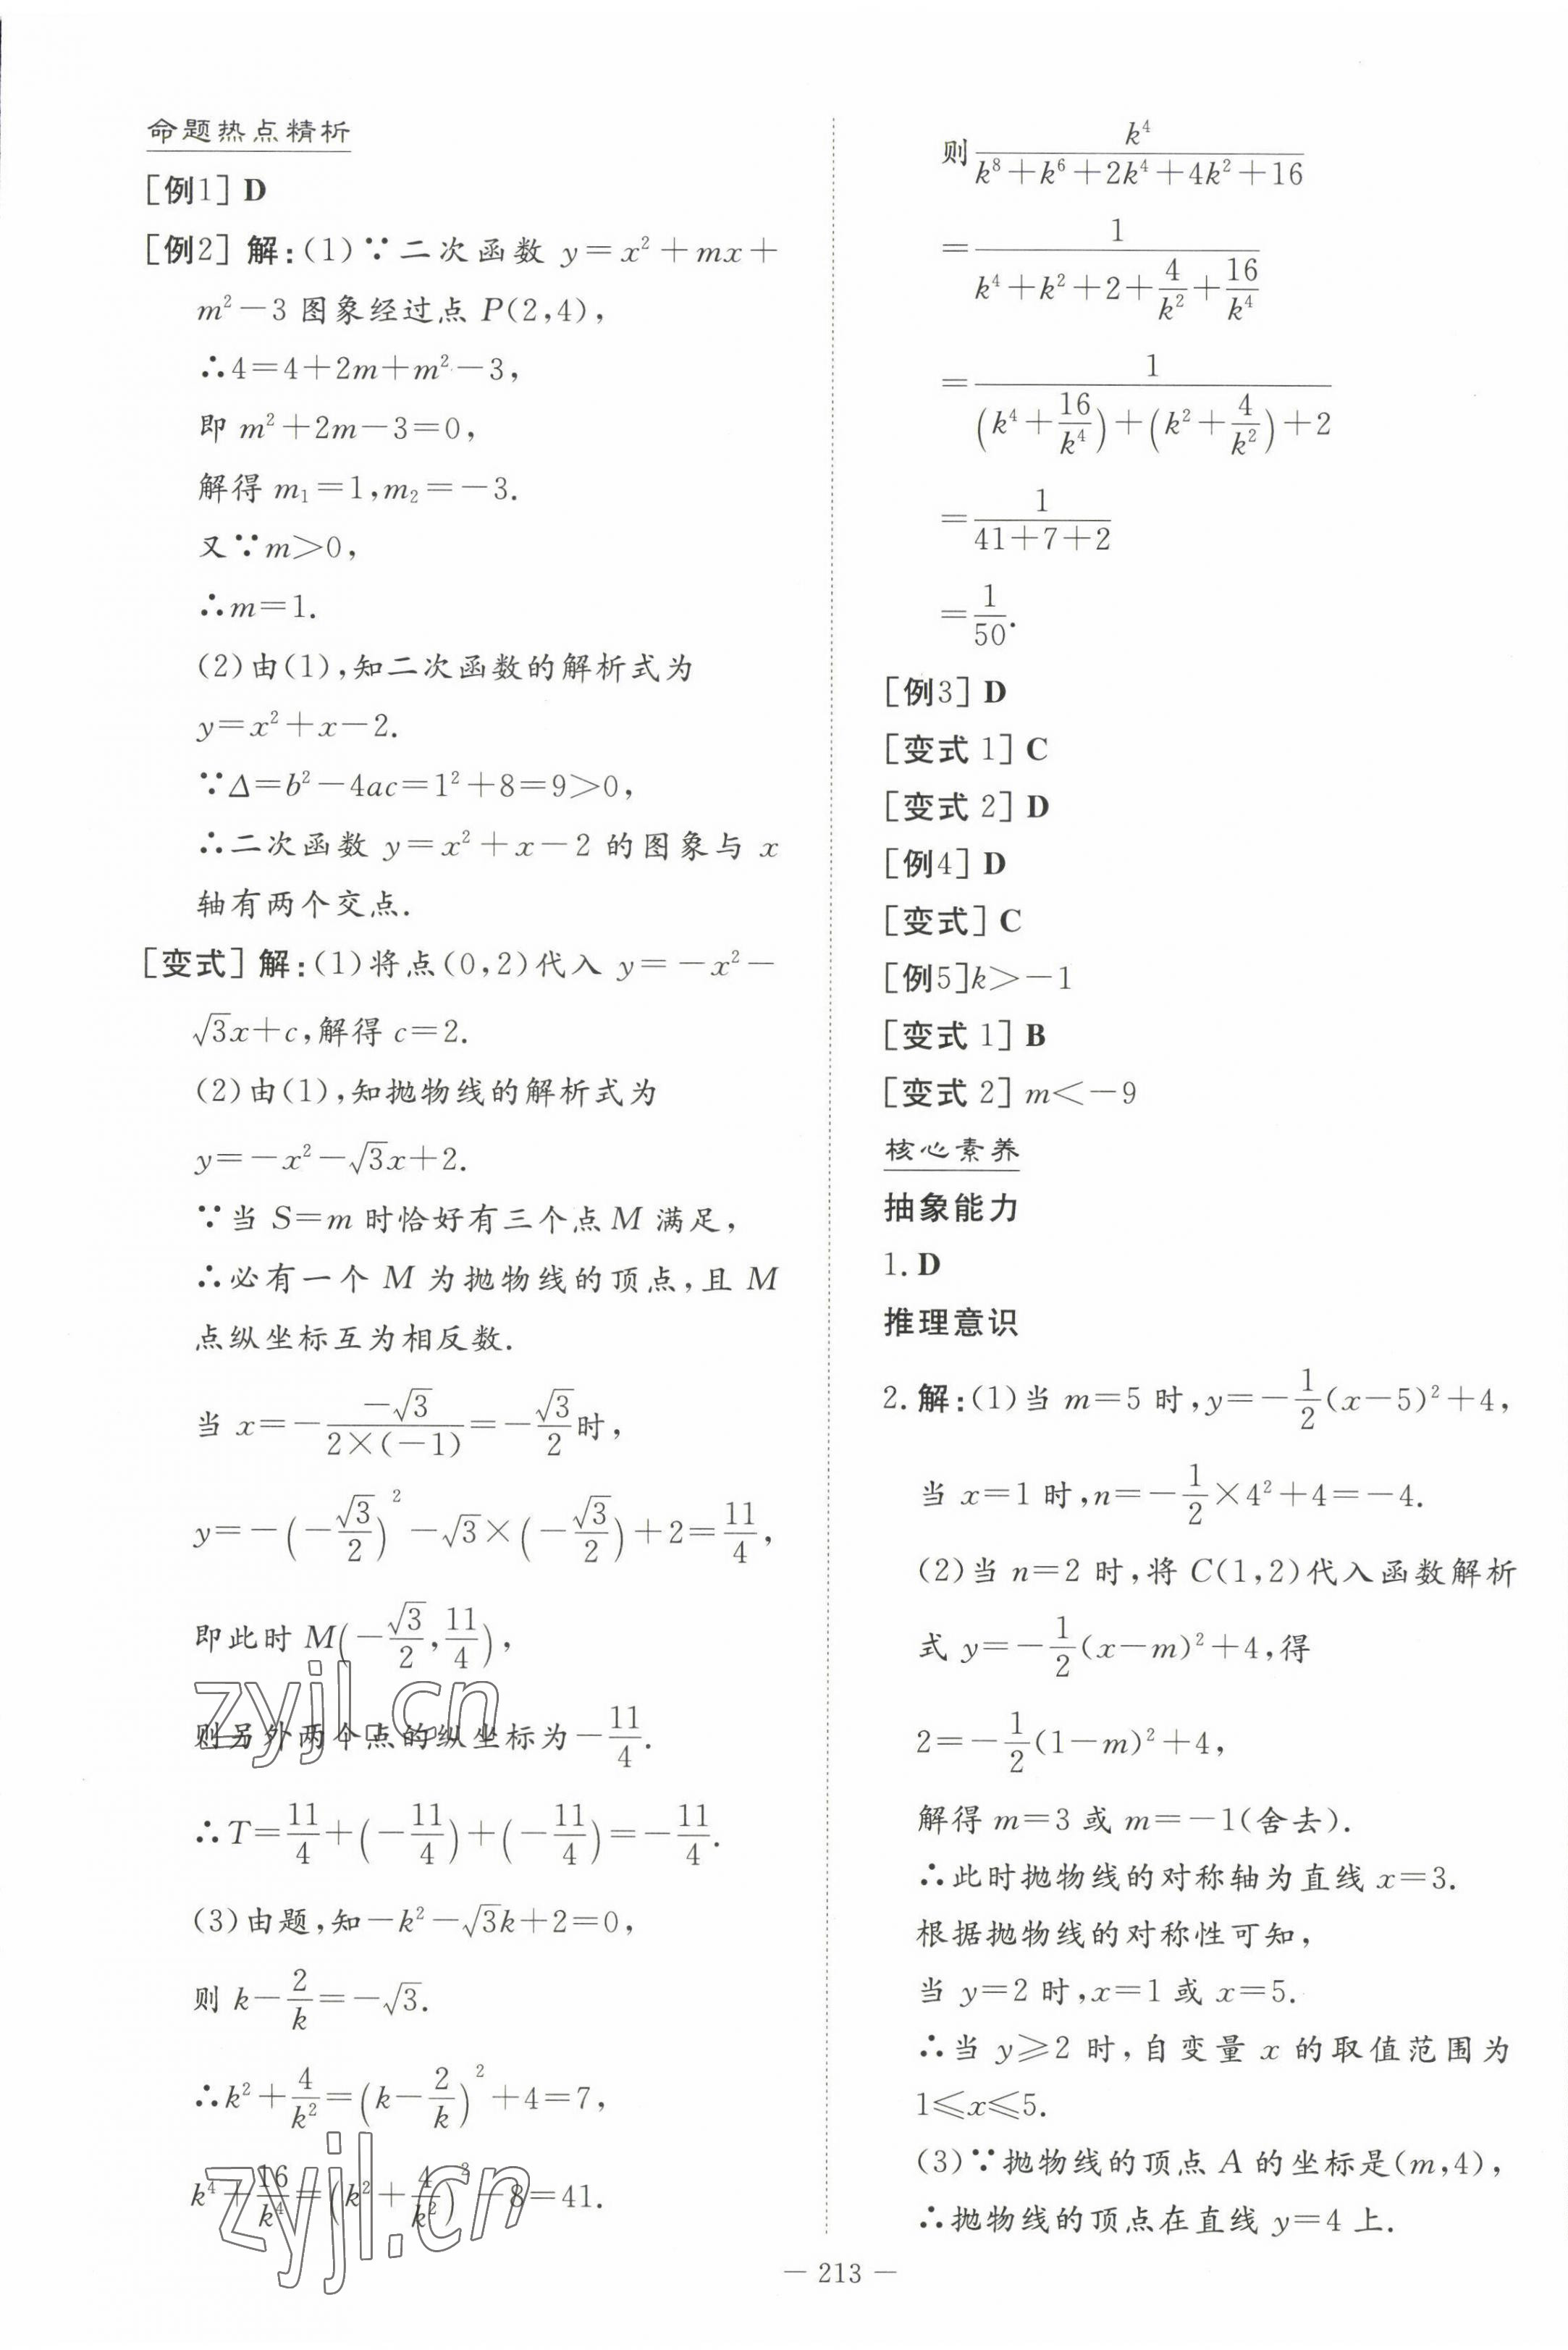 命题热点精析
[例1] D
[例2] 解:(1)∵二次函数 y=x²+mx+
m²-3 图象经过点 P(2,4),
∴4=4+2m+m²-3,
即 m²+2m-3=0,
解得 m₁=1,m₂=-3.
又∵m>0,
∴m=1.
(2)由(1),知二次函数的解析式为
y=x²+x-2.
∵Δ=b²-4ac=1²+8=9>0,
∴二次函数 y=x²+x-2 的图象与 x
轴有两个交点.
[变式] 解:(1)将点(0,2)代入 y=-x²-
√3x+c,解得 c=2.
(2)由(1),知抛物线的解析式为
y=-x²-√3x+2.
∵当 S=m 时恰好有三个点 M 满足,
∴必有一个 M 为抛物线的顶点,且 M
点纵坐标互为相反数.
当 x=-(-√3)/(2×(-1))=-√3/2时,
y=-(-√3/2)²-√3×(-√3/2)+2=11/4,
即此时 M(-√3/2,11/4),
则另外两个点的纵坐标为-11/4.
∴T=11/4+(-11/4)+(-11/4)=-11/4.
(3)由题,知-k²-√3k+2=0,
则 k-2/k=-√3.
∴k²+4/k²=(k-2/k)²+4=7,
k⁴+16/k⁴=(k²+4/k²)²-8=41.
zyjl.cn
zyjl.cn
则 k⁴/(k⁸+k⁶+2k⁴+4k²+16)
=1/(k⁴+k²+2+4/k²+16/k⁴)
=1/((k⁴+16/k⁴)+(k²+4/k²)+2)
=1/(41+7+2)
=1/50.
[例3] D
[变式 1] C
[变式 2] D
[例4] D
[变式] C
[例5]k>-1
[变式 1] B
[变式 2] m<-9
核心素养
抽象能力
1. D
推理意识
2. 解:(1)当 m=5 时,y=-1/2(x-5)²+4,
当 x=1 时,n=-1/2×4²+4=-4.
(2)当 n=2 时,将 C(1,2)代入函数解析
式 y=-1/2(x-m)²+4,得
2=-1/2(1-m)²+4,
解得 m=3 或 m=-1(舍去).
∴此时抛物线的对称轴为直线 x=3.
根据抛物线的对称性可知,
当 y=2 时,x=1 或 x=5.
∴当 y≥2 时,自变量 x 的取值范围为
1≤x≤5.
(3)∵抛物线的顶点 A 的坐标是(m,4),
∴抛物线的顶点在直线 y=4 上.
— 213 —